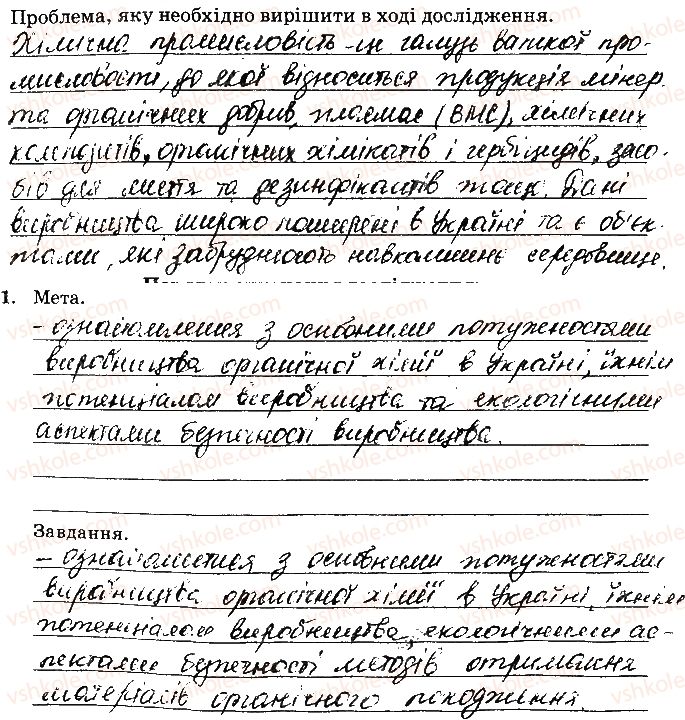 Проблема, яку необхідно вирішити в ході дослідження.
Хімична промисловість - це галузь важкої про-
мисловості, до якої відноситься продукція мінер.
та органічних добрив, пластмас (ВМС), хімічних
композитів, органічних хімікатів і гербіцидів, засо-
бів для миття та дезинфікантів тощо. Дані
виробництва широко поширені в Україні та є об'єк-
тами, які забруднюють навколишнє середовище.
1. Мета.
- ознайомлення з основними потужностями
виробництва органічної хімії в Україні, їхнім
потенціалом виробництва та екологічними
аспектами безпечності виробництва.
Завдання.
- ознайомитися з основними потужностями
виробництва органічної хімії в Україні, їхнім
потенціалом виробництва, екологічними ас-
пектами безпечності методів отримання
матеріалів органічного походження.